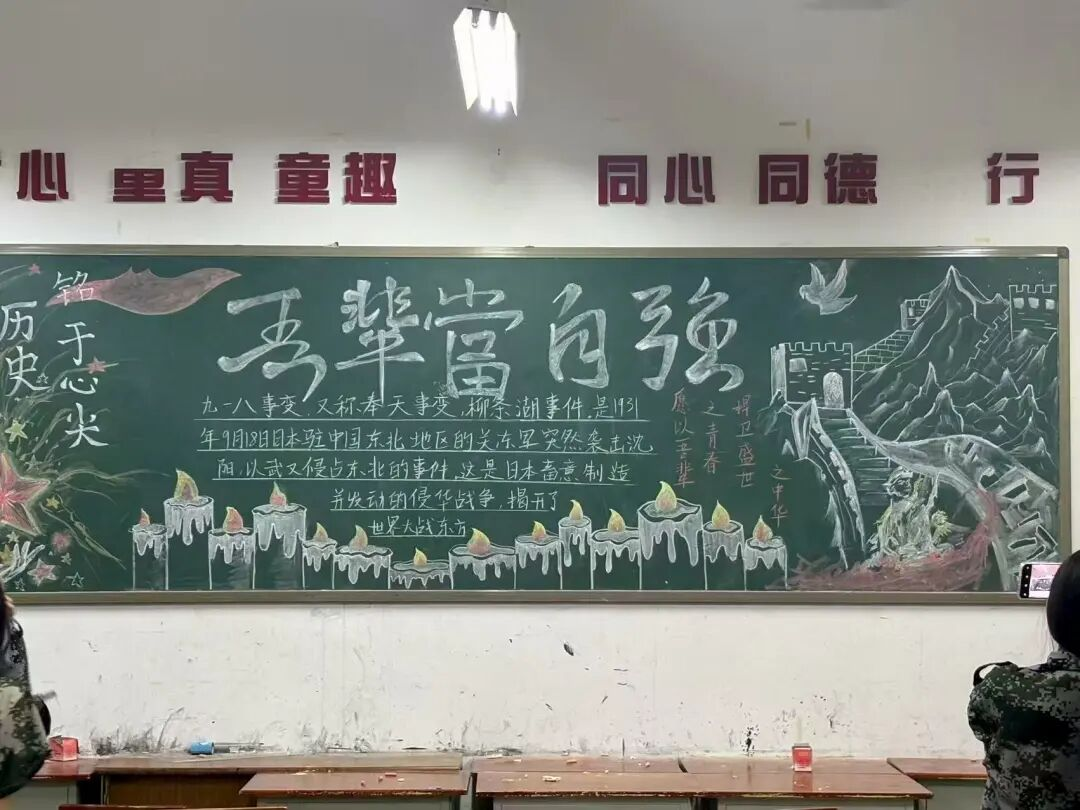 心 里 真 童趣 同心 同德 行
历史
铭于心尖
吾輩當自强
九一八事变,又称奉天事变,柳条湖事件,是1931
年9月18日日本驻中国东北地区的关东军突然袭击沈
阳,以武又侵占东北的事件,这是日本蓄意制造
并发动的侵华战争,揭开了
世界大战东方
愿以吾辈
之青春
捍卫盛世
之中华